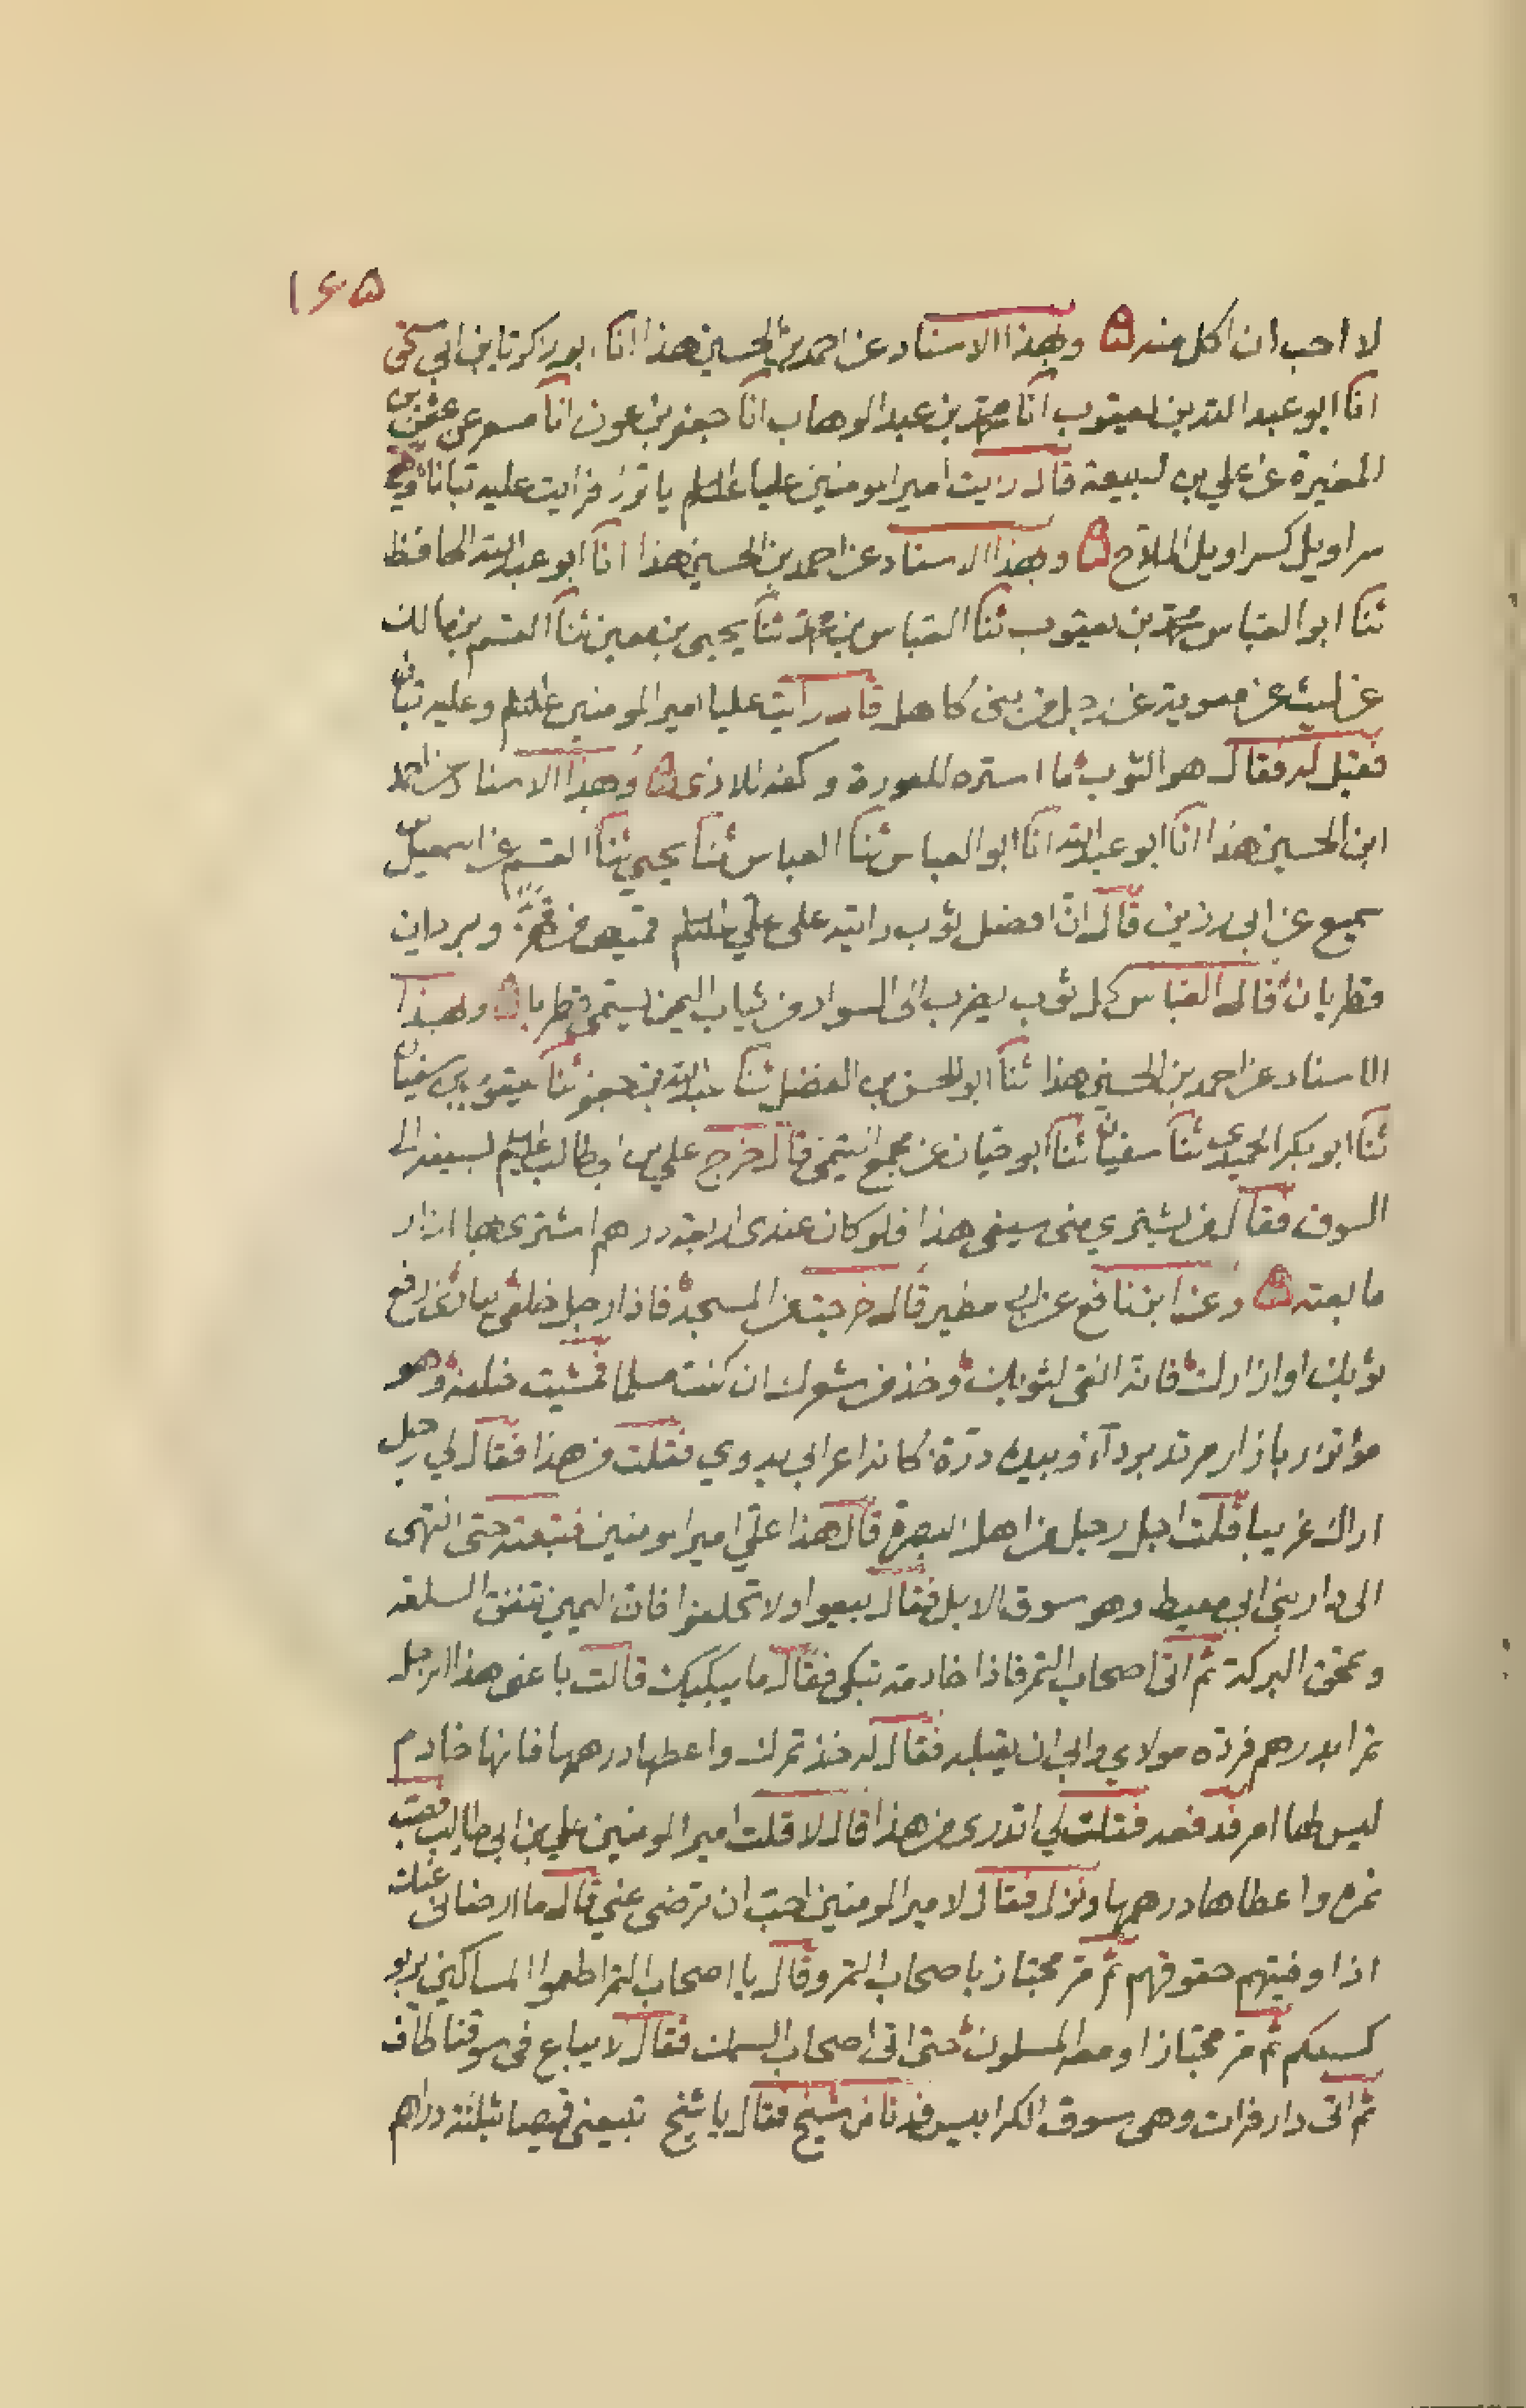 ١٦٥
لا احب ان اكل منه ۵ وبهذا الاسناد عن احمد بن الحسين هذا انا ابو زكريا بن ابي اسحق
انا ابو عبد الله بن يعقوب انا محمد بن عبد الوهاب انا جعفر بن عون انا مسعر عن عثمن بن
المغيرة عن علي بن لبيعة قال رايت امير المومنين عليا عليه السلم ياتزر فرايت عليه تبانا
سراويل كسراويل الملاح ۵ وبهذا الاسناد عن احمد بن الحسين هذا انا ابو عبد الله الحافظ
ثنا ابو العباس محمد بن يعقوب ثنا العباس بن محمد ثنا يحيى بن معين ثنا القسم بن مالك
عن ليث عن معوية عن رجل من بني كاهل قال رايت عليا امير المومنين عليه السلم وعليه تبان
فقيل له فقال هو الثوب ما استره للعورة وكفه للاذى ۵ وبهذا الاسناد عن احمد
ابن الحسين هذا انا ابو عبد الله انا ابو العباس ثنا العباس ثنا يحيى ثنا القسم عن اسمعيل بن
سميع عن ابي رزين قال ان افضل ثوب رايته على علي عليه السلم قميص من قهز وبردان
قطريان قال العباس كل ثوب يضرب الى السواد من ثياب اليمن يسمى قطريا ۵ وبهذا
الاسناد عن احمد بن الحسين هذا ثنا ابو الحسن بن الفضل ثنا عبد الله بن جعفر ثنا يعقوب بن سفيان
ثنا ابو بكر الحميدي ثنا سفيان ثنا ابو حيان عن مجمع التيمي قال خرج علي بن ابي طالب عليه السلم بسيفه الى
السوق فقال من يشتري مني سيفي هذا فلو كان عندي اربعة دراهم اشترى بها ازار
ما بعته ۵ وعن ابن نافع عن ابي مطير قال خرجت من المسجد فاذا رجل خلفي ينادي ارفع
ثوبك او ازارك فانه انقى لثوبك وخذ من شعرك ان كنت مسلما فمشيت خلفه وهو
موتزر بازار مرتد برداء وبيده درة كانه اعرابي بدوي فقلت من هذا فقال لي رجل
اراك غريبا قلت اجل رجل من اهل البصرة قال هذا علي امير المومنين فتبعته حتى انتهى
الى دار بني ابي معيط وهو سوق الابل فقال بيعوا ولا تحلفوا فان اليمين تنفق السلعة
وتمحق البركة ثم اتى اصحاب التمر فاذا خادمة تبكي فقال ما يبكيك قالت باعني هذا الرجل
تمرا بدرهم فرده مولاي وابى ان يقبله فقال له خذ تمرك واعطها درهمها فانها خادم
ليس لها امر فدفعه فقلت لي اتدري من هذا قال لا قلت امير المومنين علي بن ابي طالب فصب
تمره واعطاها درهمها ونزل فقال لامير المومنين احب ان ترضى عني قال ما ارضاني عنك
اذا اوفيتهم حقوقهم ثم مر مجتازا باصحاب التمر وقال يا اصحاب التمر اطعموا المساكين يربو
كسبكم ثم مر مجتازا ومعه المسلمون حتى اتى اصحاب السمك فقال لا يباع في سوقنا طاف
ثم اتى دار فرات وهي سوق الكرابيس فدنا من شيخ فقال يا شيخ تبيعني قميصا بثلثة دراهم